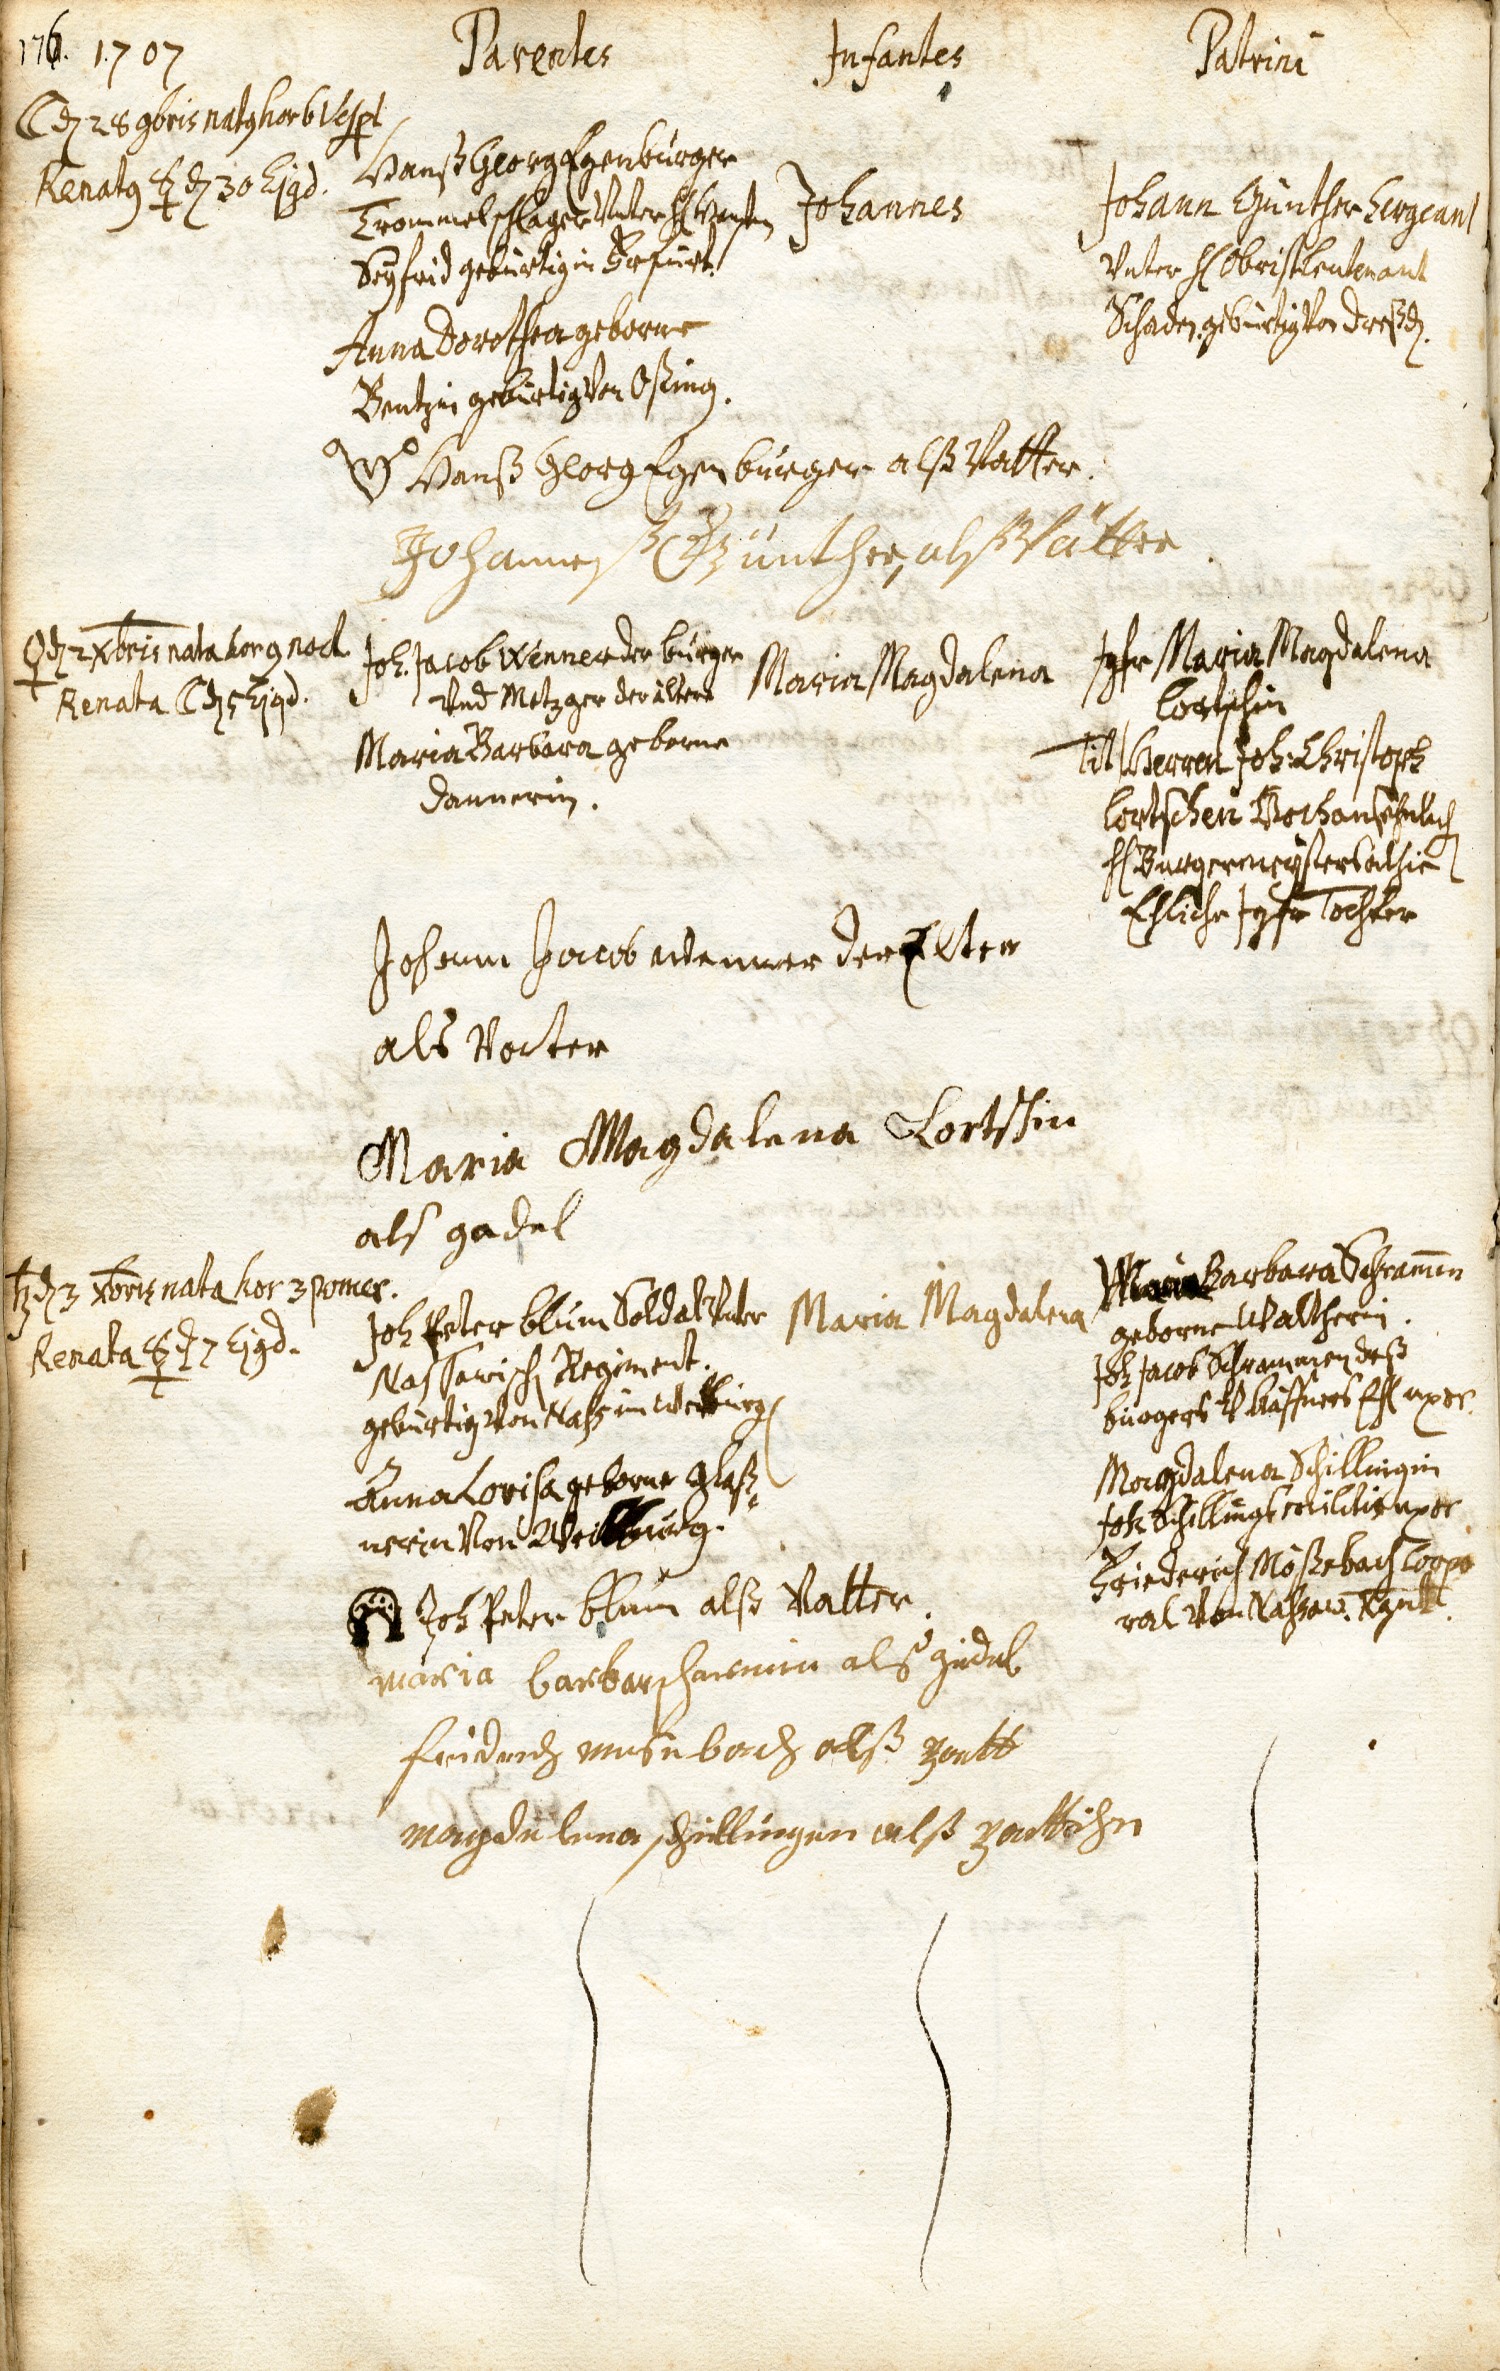 176. 1707 Parentes Infantes Patrini
☾ dn 28 9bris natg hor 6 Vesp
Renatg ☿ dn 30 Ejqd.
Hannß Georg Egenburger
Trommelschlager Unter H Haubtm
Seyfrid gebürtig in Erfurt.
Anna Dorothea geborne
Bentzin gebürtig Von Oßing.
Johannes
Johann Günther Sergeant
Unter H Obristleutenant
Schaden gebürtig Von Dreßdn.
Hannß Georg Egenburger alß Vatter.
Johanneß Günther, alß Pätter.
♀ dn 2 Xbris nata hor 9 noct
Renata ☾ dn 5 Ejqd.
Joh. Jacob Wenner der burger
Und Metzger der ältere
Maria Barbara geborne
Dannerin.
Maria Magdalena
Jgfr Maria Magdalena
Lortschin
Tit Herren Joh: Christoph
Lortschen Vorhan
H Burgermeysters alhie
Ehliche Jgfr Tochter
Johann Jacob wenner der Elter
als Vatter
Maria Magdalena Lortschin
als gadel
♄ dn 3 Xbris nata hor 3 pomer.
Renata ☿ dn 7 Ejqd.
Joh Peter blum Soldat Unter
Nassawisch Regiment.
gebürtig Von Naß im Weilburg
Anna Lovisa geborne Glaß=
nerin Von Weilburg.
Maria Magdalena
Maria Barbara Schramen
geborne Waltherin.
Joh Jacob Schrammen deß
burgers V Kuffners Ehl uxor.
Magdalena Schillingin
Joh Schillings militis uxor
Friederich Mößebach Corpo
ral Von Naßaw. Rgmt.
Joh Peter blum alß Vatter.
maria barbar schramin alß gödel
friderich musebach alß
magdalena schillingen alß